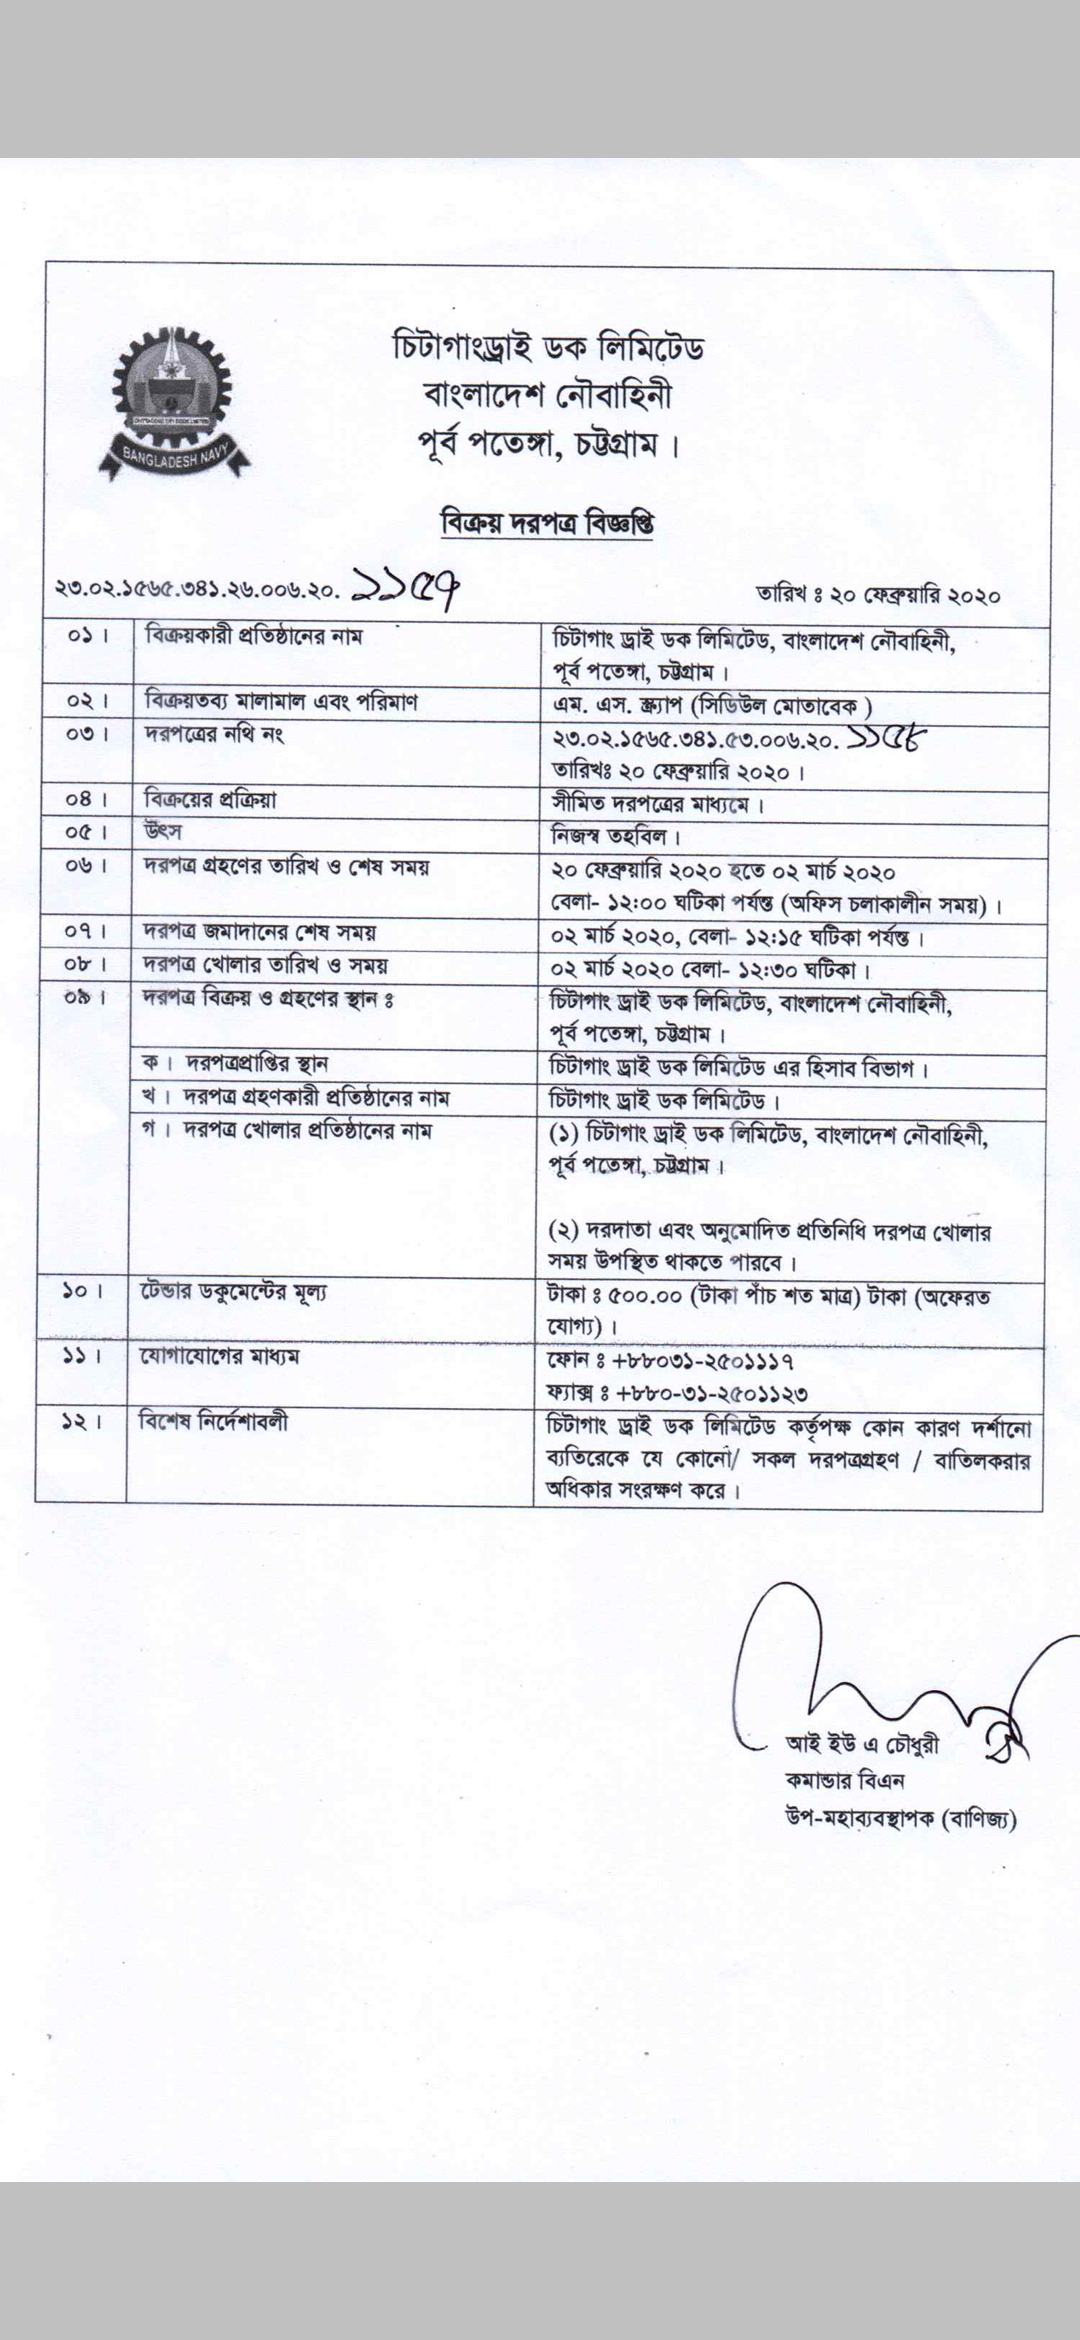 চিটাগাংড্রাই ডক লিমিটেড
বাংলাদেশ নৌবাহিনী
পূর্ব পতেঙ্গা, চট্টগ্রাম ।
BANGLADESH NAVY
বিক্রয় দরপত্র বিজ্ঞপ্তি
২৩.০২.১৫৬৫.৩৪১.২৬.০০৬.২০. ১১৫৭ তারিখ ঃ ২০ ফেব্রুয়ারি ২০২০
০১ । বিক্রয়কারী প্রতিষ্ঠানের নাম চিটাগাং ড্রাই ডক লিমিটেড, বাংলাদেশ নৌবাহিনী,
পূর্ব পতেঙ্গা, চট্টগ্রাম ।
০২ । বিক্রয়তব্য মালামাল এবং পরিমাণ এম. এস. স্ক্র্যাপ (সিডিউল মোতাবেক )
০৩ । দরপত্রের নথি নং ২৩.০২.১৫৬৫.৩৪১.৫৩.০০৬.২০. ১১৫৮
তারিখঃ ২০ ফেব্রুয়ারি ২০২০ ।
০৪ । বিক্রয়ের প্রক্রিয়া সীমিত দরপত্রের মাধ্যমে ।
০৫ । উৎস নিজস্ব তহবিল ।
০৬ । দরপত্র গ্রহণের তারিখ ও শেষ সময় ২০ ফেব্রুয়ারি ২০২০ হতে ০২ মার্চ ২০২০
বেলা- ১২ঃ০০ ঘটিকা পর্যন্ত (অফিস চলাকালীন সময়) ।
০৭ । দরপত্র জমাদানের শেষ সময় ০২ মার্চ ২০২০, বেলা- ১২ঃ১৫ ঘটিকা পর্যন্ত ।
০৮ । দরপত্র খোলার তারিখ ও সময় ০২ মার্চ ২০২০ বেলা- ১২ঃ৩০ ঘটিকা ।
০৯ । দরপত্র বিক্রয় ও গ্রহণের স্থান ঃ চিটাগাং ড্রাই ডক লিমিটেড, বাংলাদেশ নৌবাহিনী,
পূর্ব পতেঙ্গা, চট্টগ্রাম ।
ক । দরপত্রপ্রাপ্তির স্থান চিটাগাং ড্রাই ডক লিমিটেড এর হিসাব বিভাগ ।
খ । দরপত্র গ্রহণকারী প্রতিষ্ঠানের নাম চিটাগাং ড্রাই ডক লিমিটেড ।
গ । দরপত্র খোলার প্রতিষ্ঠানের নাম (১) চিটাগাং ড্রাই ডক লিমিটেড, বাংলাদেশ নৌবাহিনী,
পূর্ব পতেঙ্গা, চট্টগ্রাম ।
(২) দরদাতা এবং অনুমোদিত প্রতিনিধি দরপত্র খোলার
সময় উপস্থিত থাকতে পারবে ।
১০ । টেন্ডার ডকুমেন্টের মূল্য টাকা ঃ ৫০০.০০ (টাকা পাঁচ শত মাত্র) টাকা (অফেরত
যোগ্য) ।
১১ । যোগাযোগের মাধ্যম ফোন ঃ +৮৮০৩১-২৫০১১১৭
ফ্যাক্স ঃ +৮৮০-৩১-২৫০১১২৩
১২ । বিশেষ নির্দেশাবলী চিটাগাং ড্রাই ডক লিমিটেড কর্তৃপক্ষ কোন কারণ দর্শানো
ব্যতিরেকে যে কোনো/ সকল দরপত্রগ্রহণ / বাতিলকরার
অধিকার সংরক্ষণ করে ।
আই ইউ এ চৌধুরী
কমান্ডার বিএন
উপ-মহাব্যবস্থাপক (বাণিজ্য)